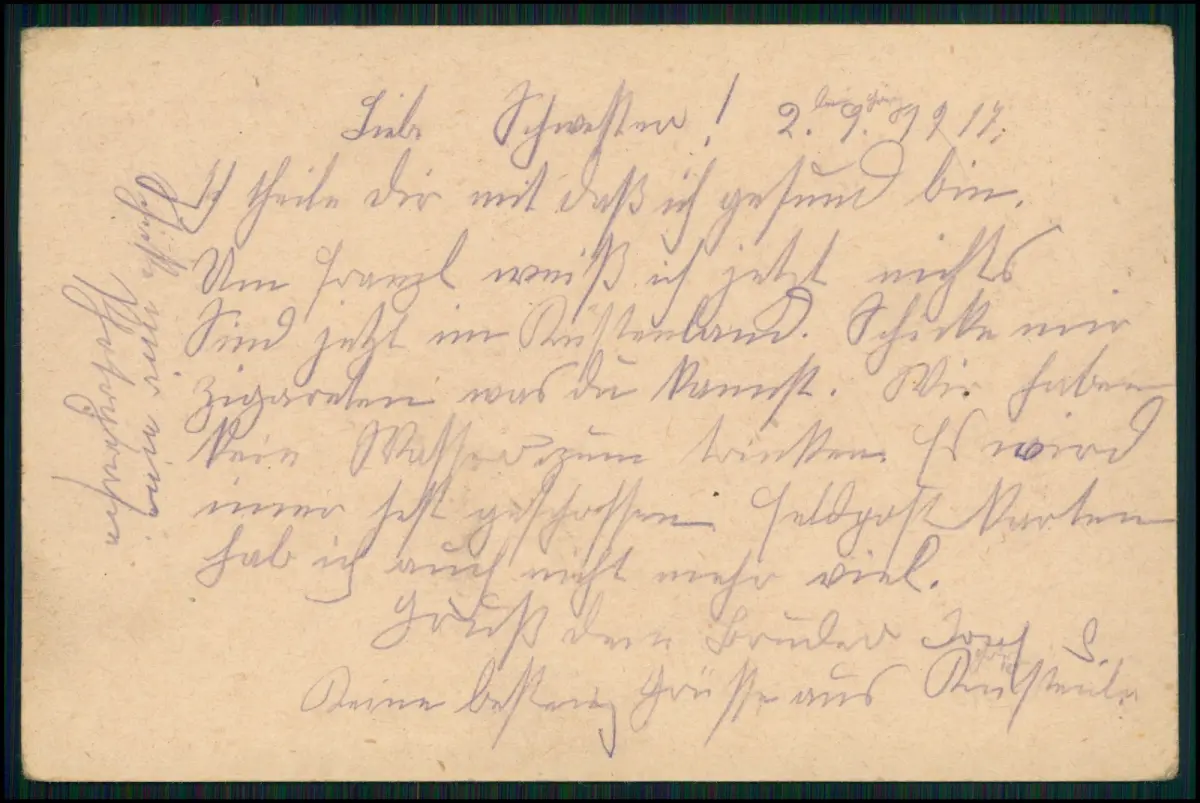 Liebe Schwester! 2. 9. 1917.
Ich theile dir mit daß ich gesund bin.
Um Franzl weiß ich jetzt nichts
Sind jetzt im Küstenland. Schicke mir
Zigareten was du kannst. Wir haben
kein Wasser zum trinken. Es wird
imer fest geschossen. Feldpost karten
hab ich auch nicht mehr viel.
Gruß dein Bruder Josef S.
Meine besten Grüsse aus
Schicke mir eine
Photografie